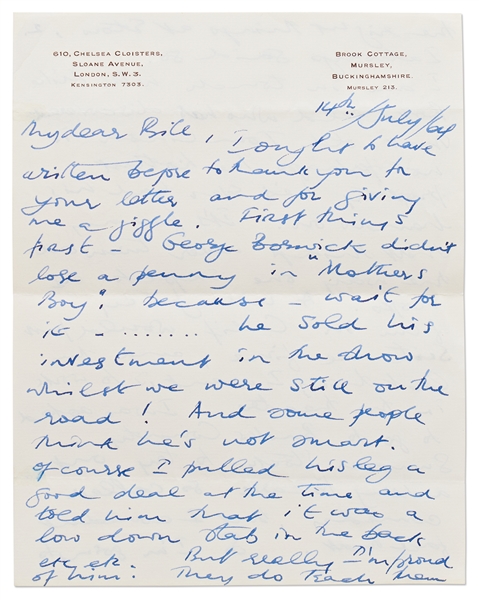 610, Chelsea Cloisters,
Sloane Avenue,
London, S.W.3.
Kensington 7303.
Brook Cottage,
Mursley,
Buckinghamshire.
Mursley 213.
14th July/64
My dear Bill, I ought to have
written before to thank you for
your letter and for giving
me a giggle. First things
first - George Borwick didn't
lose a penny in "Mothers
Boy". because - wait for
it - ........ he sold his
investment in the show
whilst we were still on the
road! And some people
think he's not smart.
Of course I pulled his leg a
good deal at the time and
told him that it was a
low down stab in the back
etc etc. But really I'm proud
of him. They do teach them